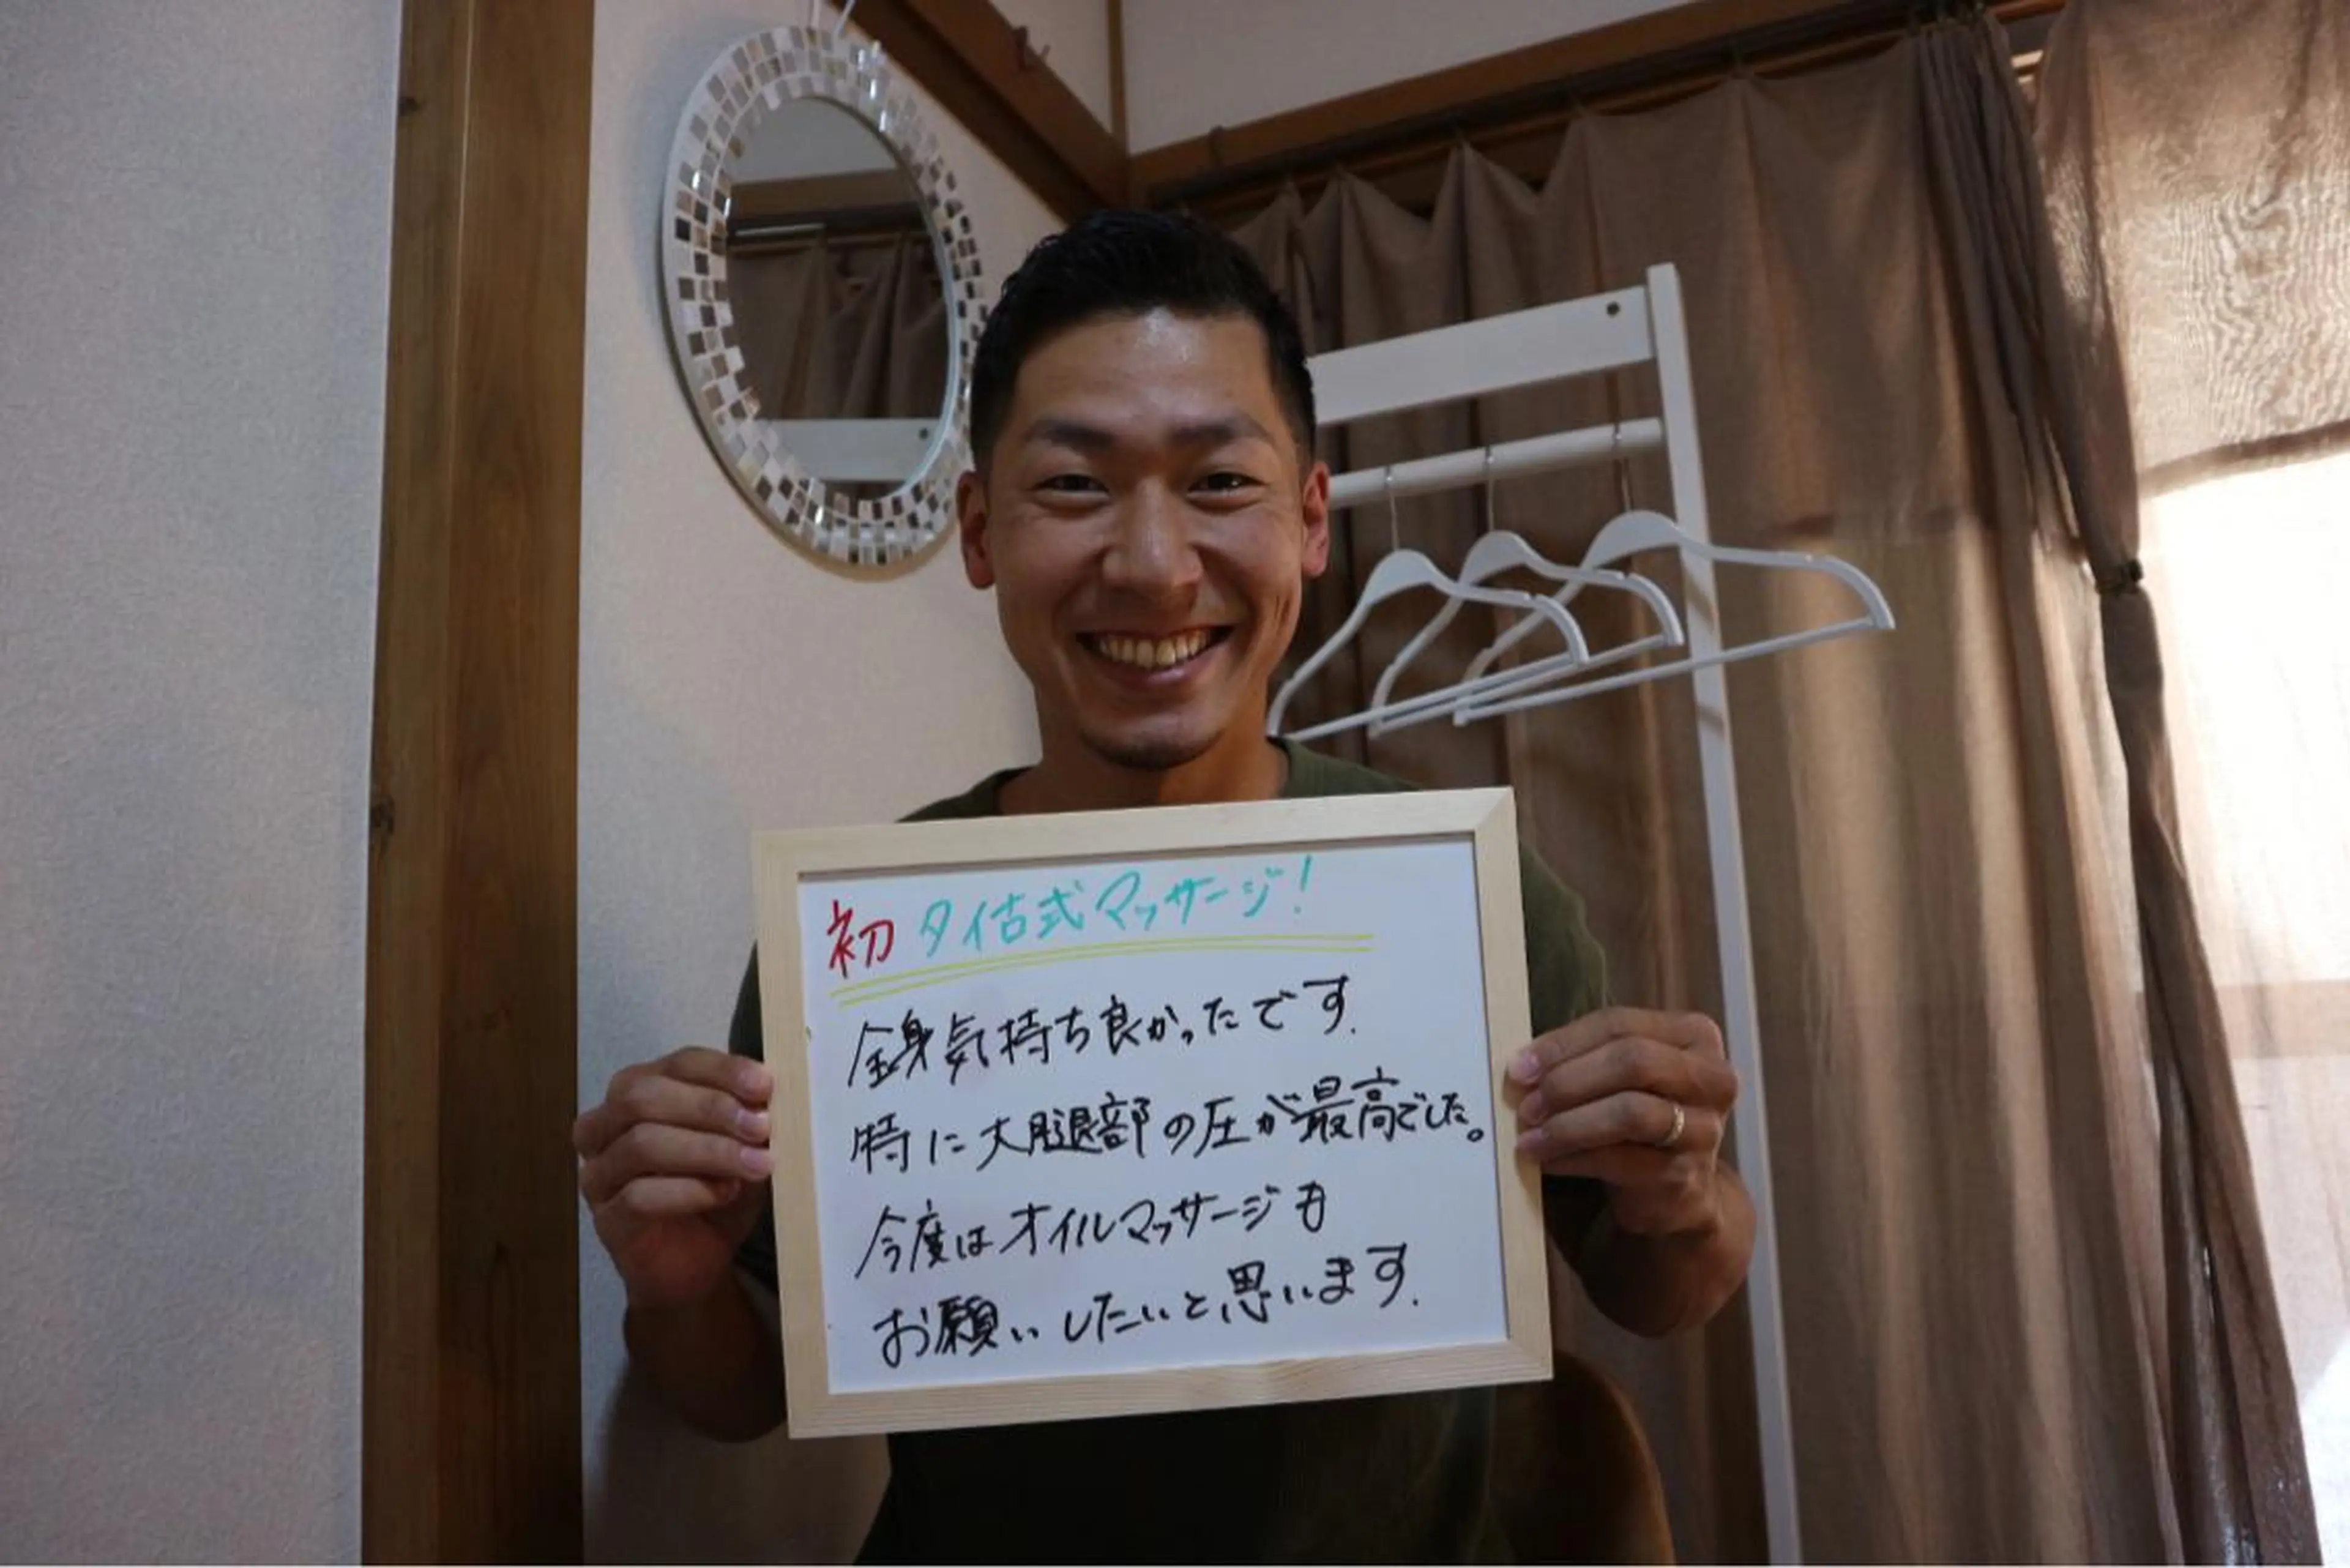 初 タイ古式マッサージ!
全身気持ち良かったです.
特に大腿部の圧が最高でした。
今度はオイルマッサージも
お願いしたいと思います.